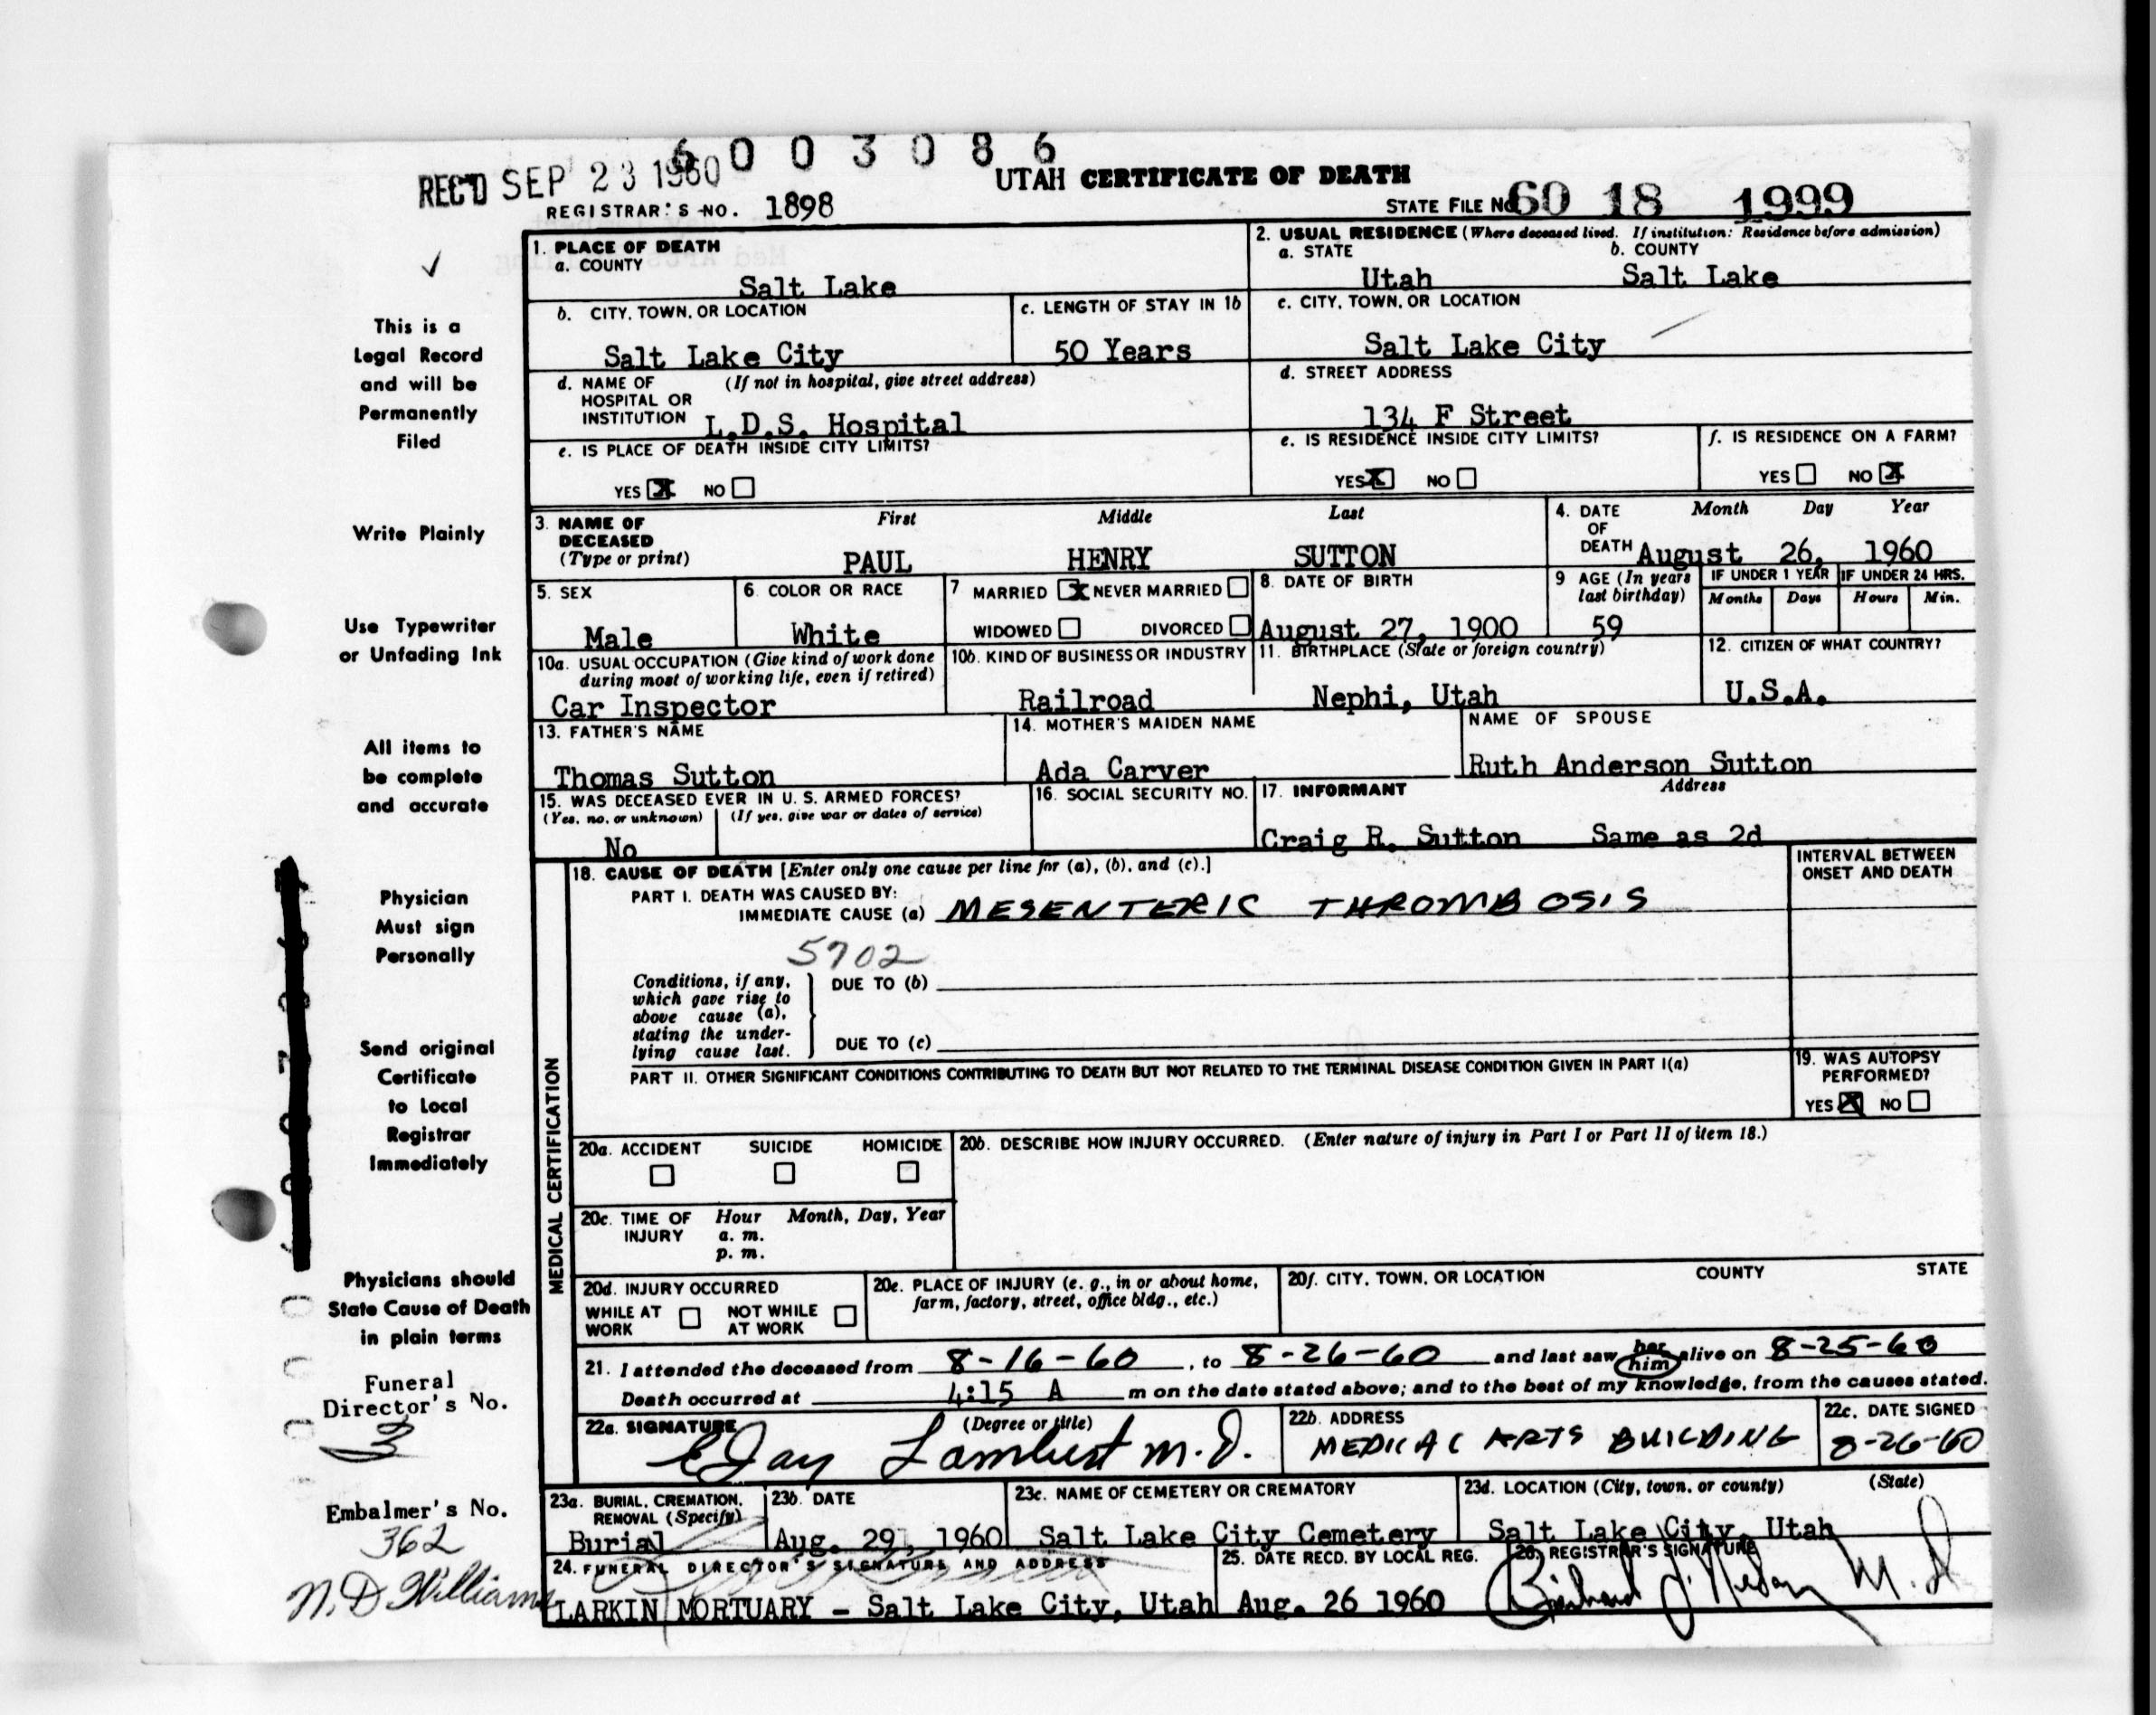 6003086
REC'D SEP 23 1960
UTAH CERTIFICATE OF DEATH
REGISTRAR'S NO. 1898
STATE FILE NO. 60 18 1999
This is a
Legal Record
and will be
Permanently
Filed
Write Plainly
Use Typewriter
or Unfading Ink
All items to
be complete
and accurate
Physician
Must sign
Personally
Send original
Certificate
to Local
Registrar
Immediately
Physicians should
State Cause of Death
in plain terms
Funeral
Director's No.
3
Embalmer's No.
362
N. D Williams
1. PLACE OF DEATH
a. COUNTY
Salt Lake
2. USUAL RESIDENCE (Where deceased lived. If institution: Residence before admission)
a. STATE b. COUNTY
Utah Salt Lake
b. CITY, TOWN, OR LOCATION
Salt Lake City
c. LENGTH OF STAY IN 1b
50 Years
c. CITY, TOWN, OR LOCATION
Salt Lake City
d. NAME OF (If not in hospital, give street address)
HOSPITAL OR
INSTITUTION L.D.S. Hospital
d. STREET ADDRESS
134 F Street
e. IS PLACE OF DEATH INSIDE CITY LIMITS?
YES X NO
e. IS RESIDENCE INSIDE CITY LIMITS?
YES X NO
f. IS RESIDENCE ON A FARM?
YES NO X
3. NAME OF First Middle Last
DECEASED
(Type or print) PAUL HENRY SUTTON
4. DATE Month Day Year
OF
DEATH August 26, 1960
5. SEX
Male
6. COLOR OR RACE
White
7 MARRIED X NEVER MARRIED
WIDOWED DIVORCED
8. DATE OF BIRTH
August 27, 1900
9 AGE (In years
last birthday)
59
IF UNDER 1 YEAR IF UNDER 24 HRS.
Months Days Hours Min.
10a. USUAL OCCUPATION (Give kind of work done
during most of working life, even if retired)
Car Inspector
10b. KIND OF BUSINESS OR INDUSTRY
Railroad
11. BIRTHPLACE (State or foreign country)
Nephi, Utah
12. CITIZEN OF WHAT COUNTRY?
U.S.A.
13. FATHER'S NAME
Thomas Sutton
14. MOTHER'S MAIDEN NAME
Ada Carver
NAME OF SPOUSE
Ruth Anderson Sutton
15. WAS DECEASED EVER IN U. S. ARMED FORCES?
(Yes, no, or unknown) (If yes, give war or dates of service)
No
16. SOCIAL SECURITY NO.
17. INFORMANT Address
Craig R. Sutton Same as 2d
MEDICAL CERTIFICATION
18. CAUSE OF DEATH [Enter only one cause per line for (a), (b), and (c).]
INTERVAL BETWEEN
ONSET AND DEATH
PART I. DEATH WAS CAUSED BY:
IMMEDIATE CAUSE (a) MESENTERIC THROMBOSIS
5702
Conditions, if any,
which gave rise to
above cause (a),
stating the under-
lying cause last.
DUE TO (b)
DUE TO (c)
PART II. OTHER SIGNIFICANT CONDITIONS CONTRIBUTING TO DEATH BUT NOT RELATED TO THE TERMINAL DISEASE CONDITION GIVEN IN PART I(a)
19. WAS AUTOPSY
PERFORMED?
YES X NO
20a. ACCIDENT SUICIDE HOMICIDE
20b. DESCRIBE HOW INJURY OCCURRED. (Enter nature of injury in Part I or Part II of item 18.)
20c. TIME OF Hour Month, Day, Year
INJURY a. m.
p. m.
20d. INJURY OCCURRED
WHILE AT NOT WHILE
WORK AT WORK
20e. PLACE OF INJURY (e. g., in or about home,
farm, factory, street, office bldg., etc.)
20f. CITY, TOWN, OR LOCATION COUNTY STATE
21. I attended the deceased from 8-16-60, to 8-26-60 and last saw her him alive on 8-25-60
Death occurred at 4:15 A m on the date stated above; and to the best of my knowledge, from the causes stated.
22a. SIGNATURE (Degree or title)
E Jay Lambert M.D.
22b. ADDRESS
MEDICAL ARTS BUILDING
22c. DATE SIGNED
8-26-60
23a. BURIAL, CREMATION,
REMOVAL (Specify)
Burial
23b. DATE
Aug. 29, 1960
23c. NAME OF CEMETERY OR CREMATORY
Salt Lake City Cemetery
23d. LOCATION (City, town, or county) (State)
Salt Lake City, Utah
24. FUNERAL DIRECTOR'S SIGNATURE AND ADDRESS
LARKIN MORTUARY - Salt Lake City, Utah
25. DATE RECD. BY LOCAL REG.
Aug. 26 1960
26. REGISTRAR'S SIGNATURE
M.D